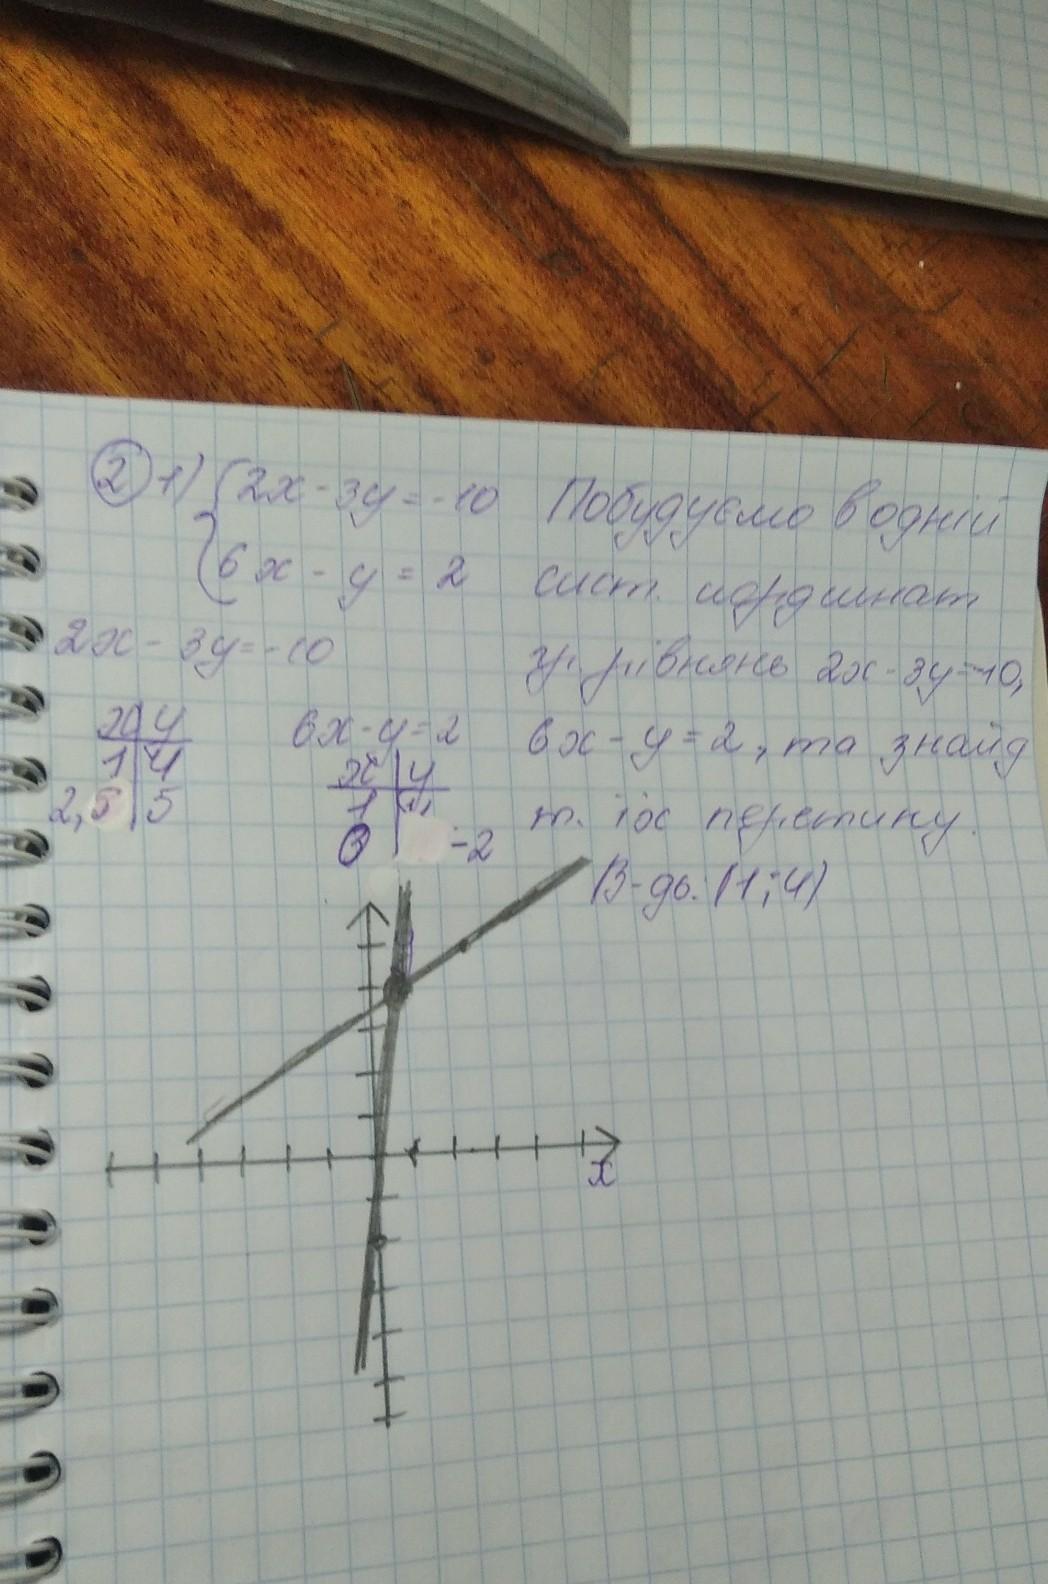 2 1) {2x - 3y = -10
6x - y = 2
Побудуємо в одній
сист. координат
гр. рівнянь 2x - 3y = -10,
6x - y = 2, та знайд
т. їх перетину.
В-дь: (1; 4)
2x - 3y = -10
x | y
1 | 4
2,5 | 5
6x - y = 2
x | y
1 | 4
0 | -2
x